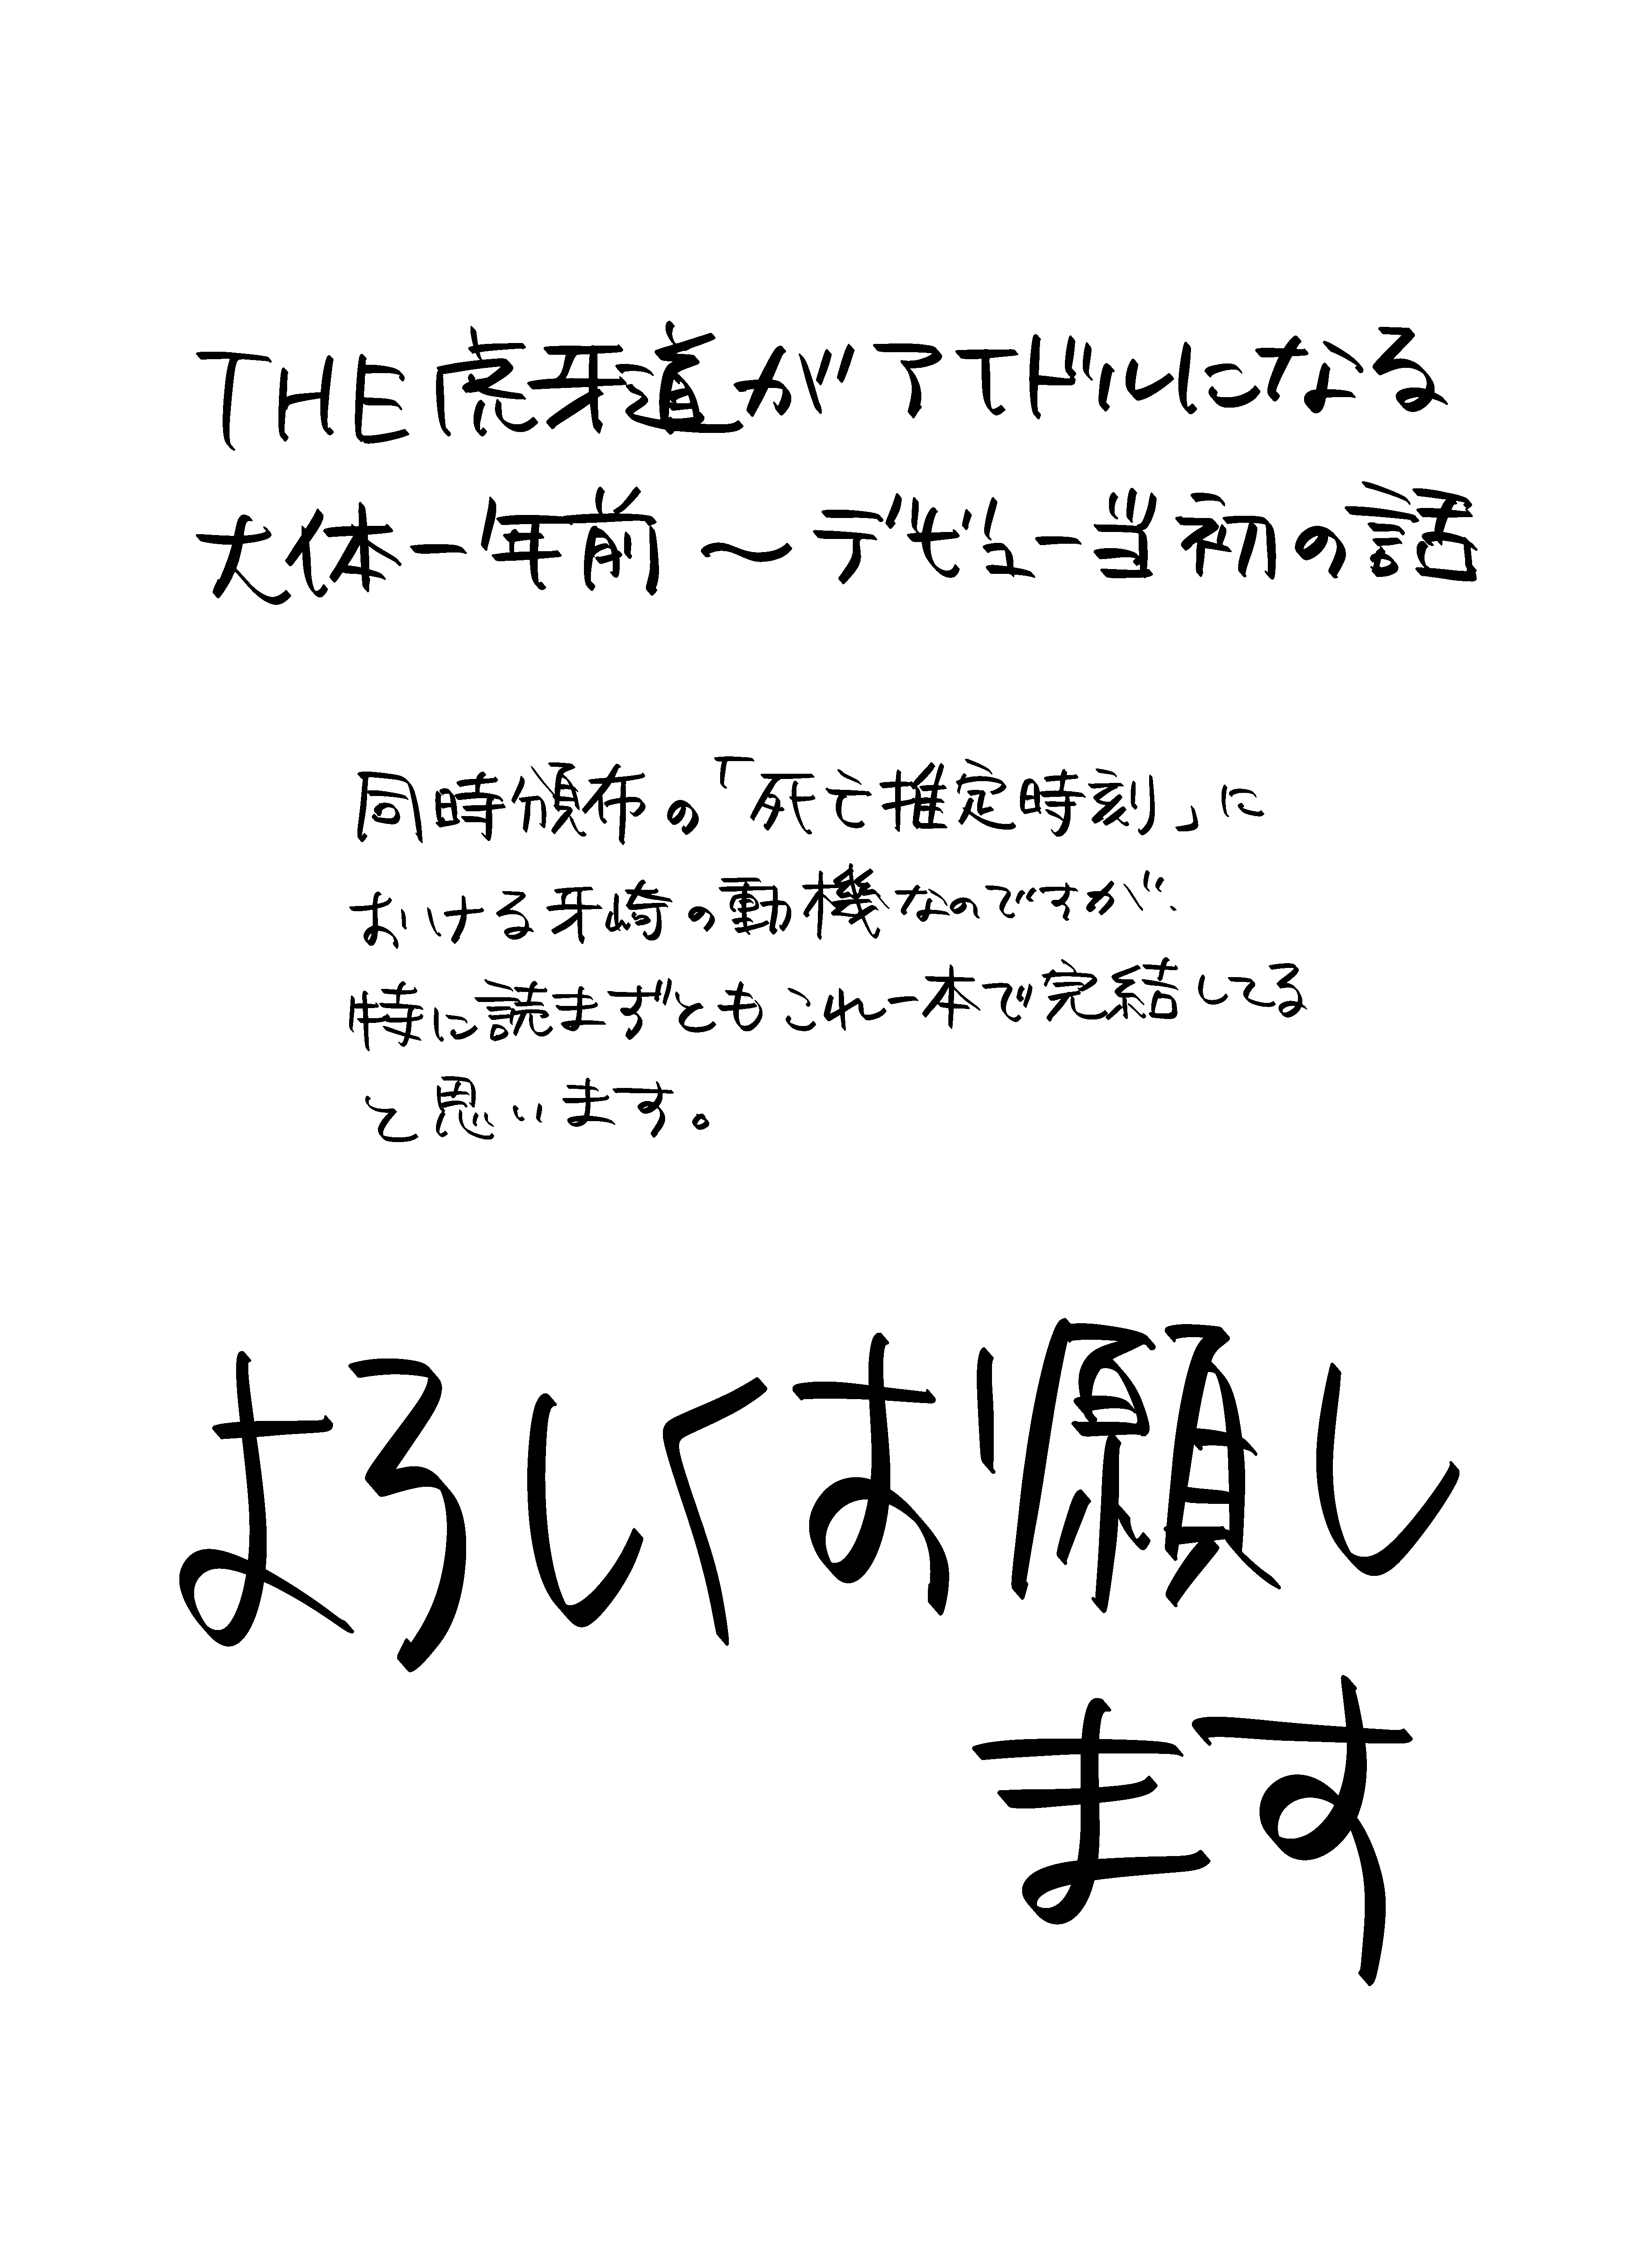 THE虎牙道がアイドルになる
大体一年前〜デビュー当初の話
同時頒布の「死亡推定時刻」に
おける牙崎の動機なのですが、
特に読まずともこれ一本で完結してる
と思います。
よろしくお願いし
ます